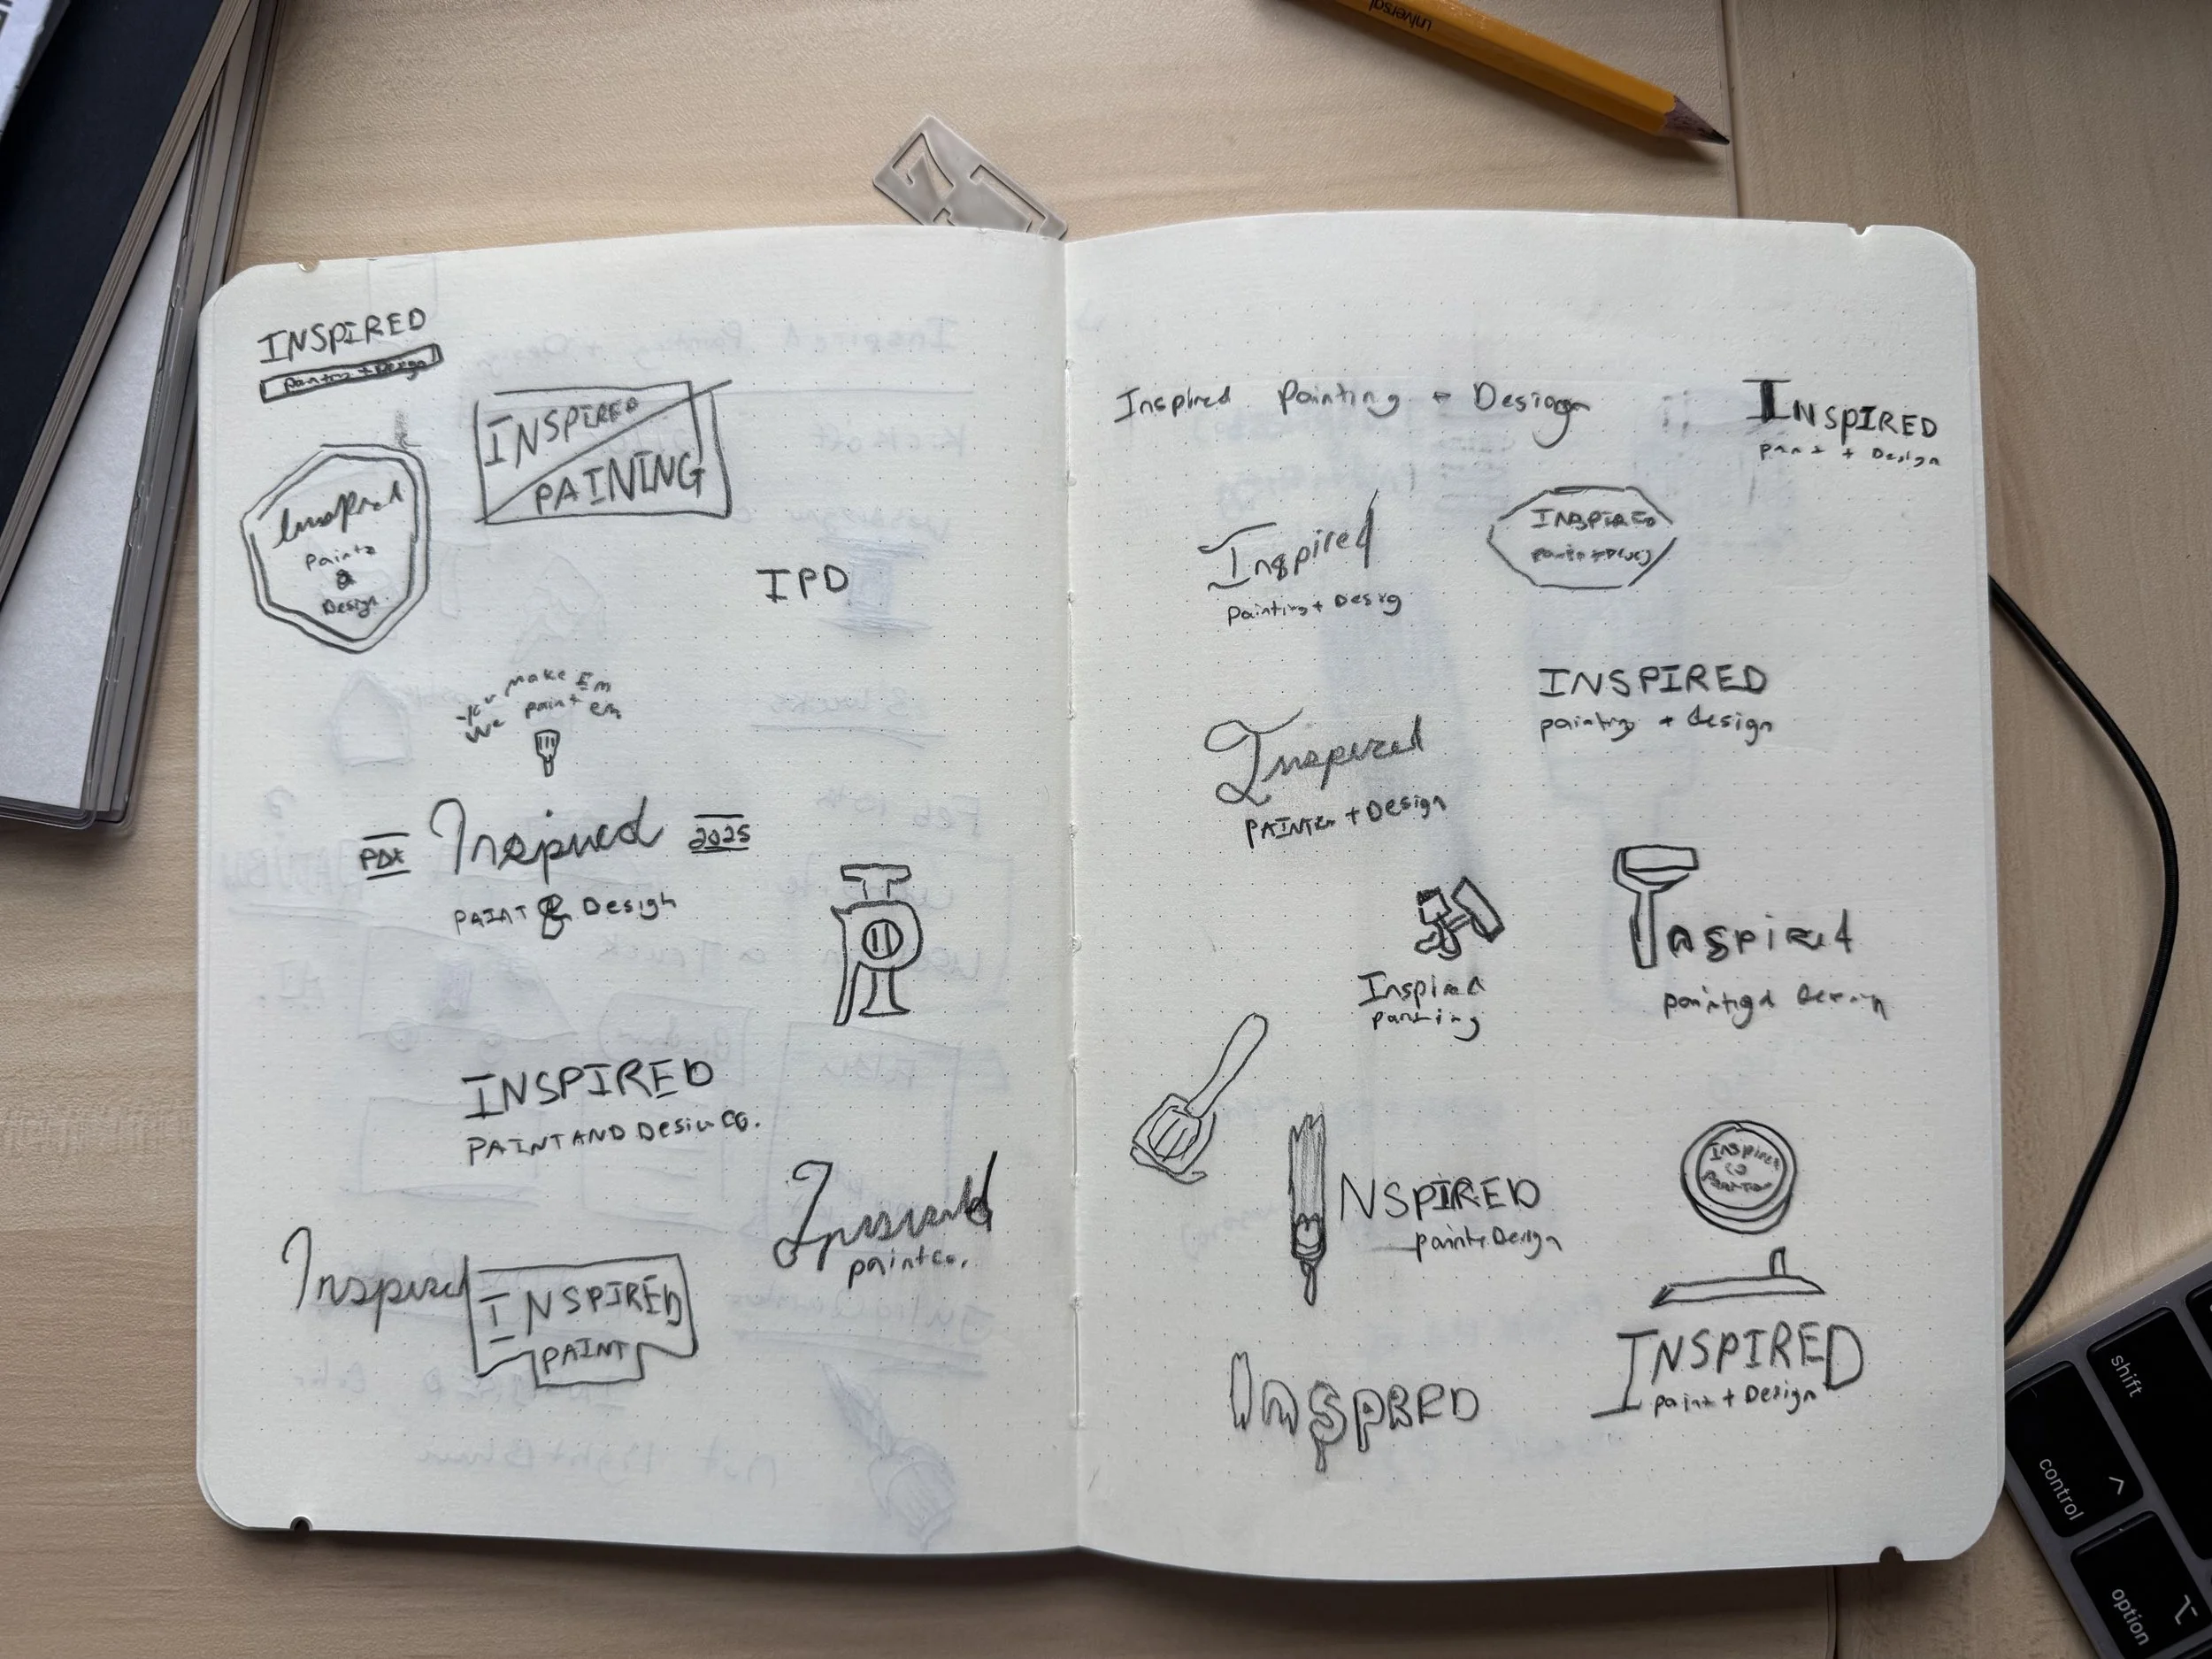 universal
INSPIRED
Painting + Design
INSPIRED
PAINING
Inspired
Paint
&
Design
IPD
You make Em
We paint em
PDX
Inspired
2025
PAINT & Design
INSPIRED
PAINT AND Design CO.
Inspired
paint co.
Inspired
INSPIRED
PAINT
Inspired Painting + Design
INSPIRED
paint + Design
Inspired
Painting + Desig
INSPIRED
INSPIRED
painting + design
Inspired
PAINTEn + Design
Inspired
painting
Inspired
NSPIRED
paint + Design
Inspired
co
INSPIRED
paint + Design
InSPIRED
shift
control
option